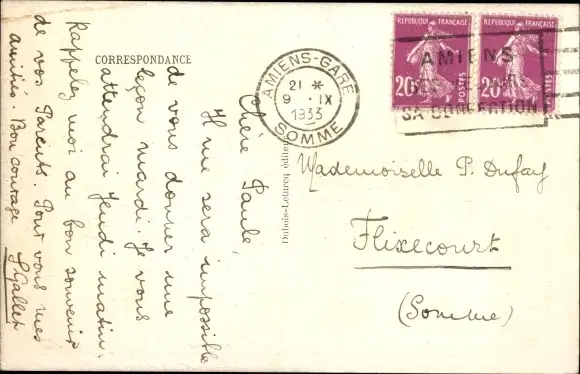 CORRESPONDANCE
Chère Paule,
Il me sera impossible
de vous donner une
leçon mardi. Je vous
attendrai Jeudi matin.
Rappelez moi au bon souvenir
de vos Parents. Pour vous mes
amitiés. Bon courage
Gallet
Dubois-Leturcq éditeur
AMIENS-GARE
21 *
9 IX
1933
SOMME
REPUBLIQUE FRANÇAISE
20c
POSTES
REPUBLIQUE FRANÇAISE
20c
POSTES
AMIENS
SA CONFECTION
Mademoiselle P. Dufay
Flixecourt
(Somme)